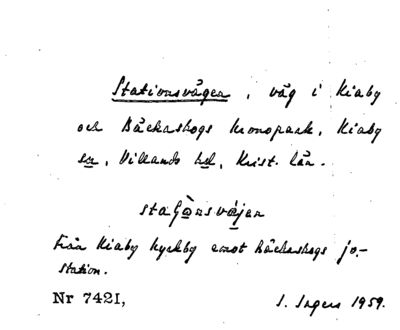 Stationsvägen, väg i Kiaby
och Bäckaskogs kronopark, Kiaby
sn, Villands hd, Krist. län.
staʃɷ̀nsvä́jen
Från Kiaby kyrkby emot Bäckaskogs jv.-
station.
Nr 7421, I. Ingers 1959.